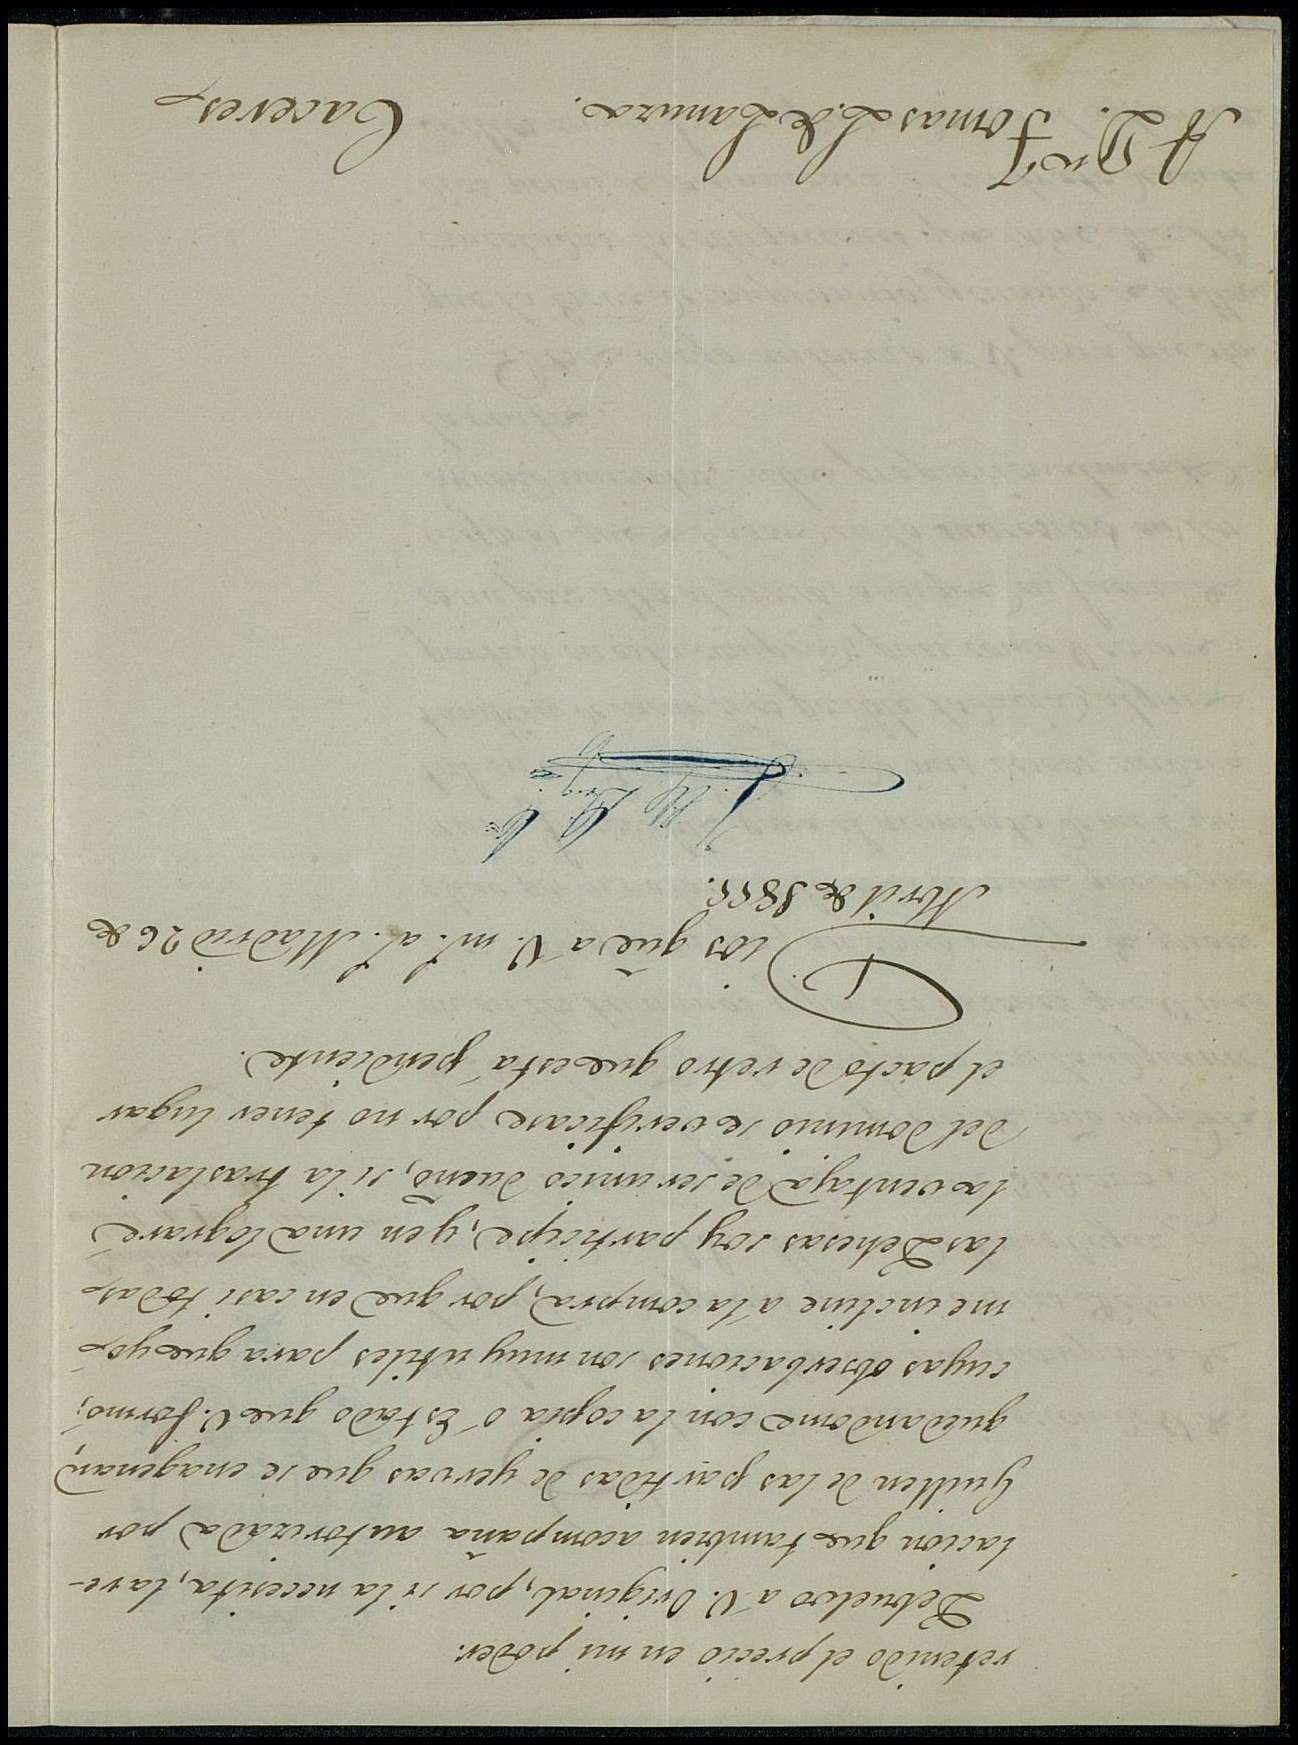 retenido el precio en mi poder.
Debuelvo a V. Original, por si la necesita, la re-
lacion que tambien acompaña autorizada por
Guillen de las partidas de yervas que se enagenan,
quedandome con la copia ó Estado que V. formó;
cuyas obserbaciones son muy utiles para que yo
me incline a la compra, por que en casi todas
las Dehesas soy participe, y en una lograré
la ventaja de ser unico dueño, si la traslacion
del dominio se verificase por no tener lugar
el pacto de retro que está pendiente.
Dios gue a V. m. a. Madrid 26 de
Abril de
A Dn. Tomas L. de Lamuza. Caceres